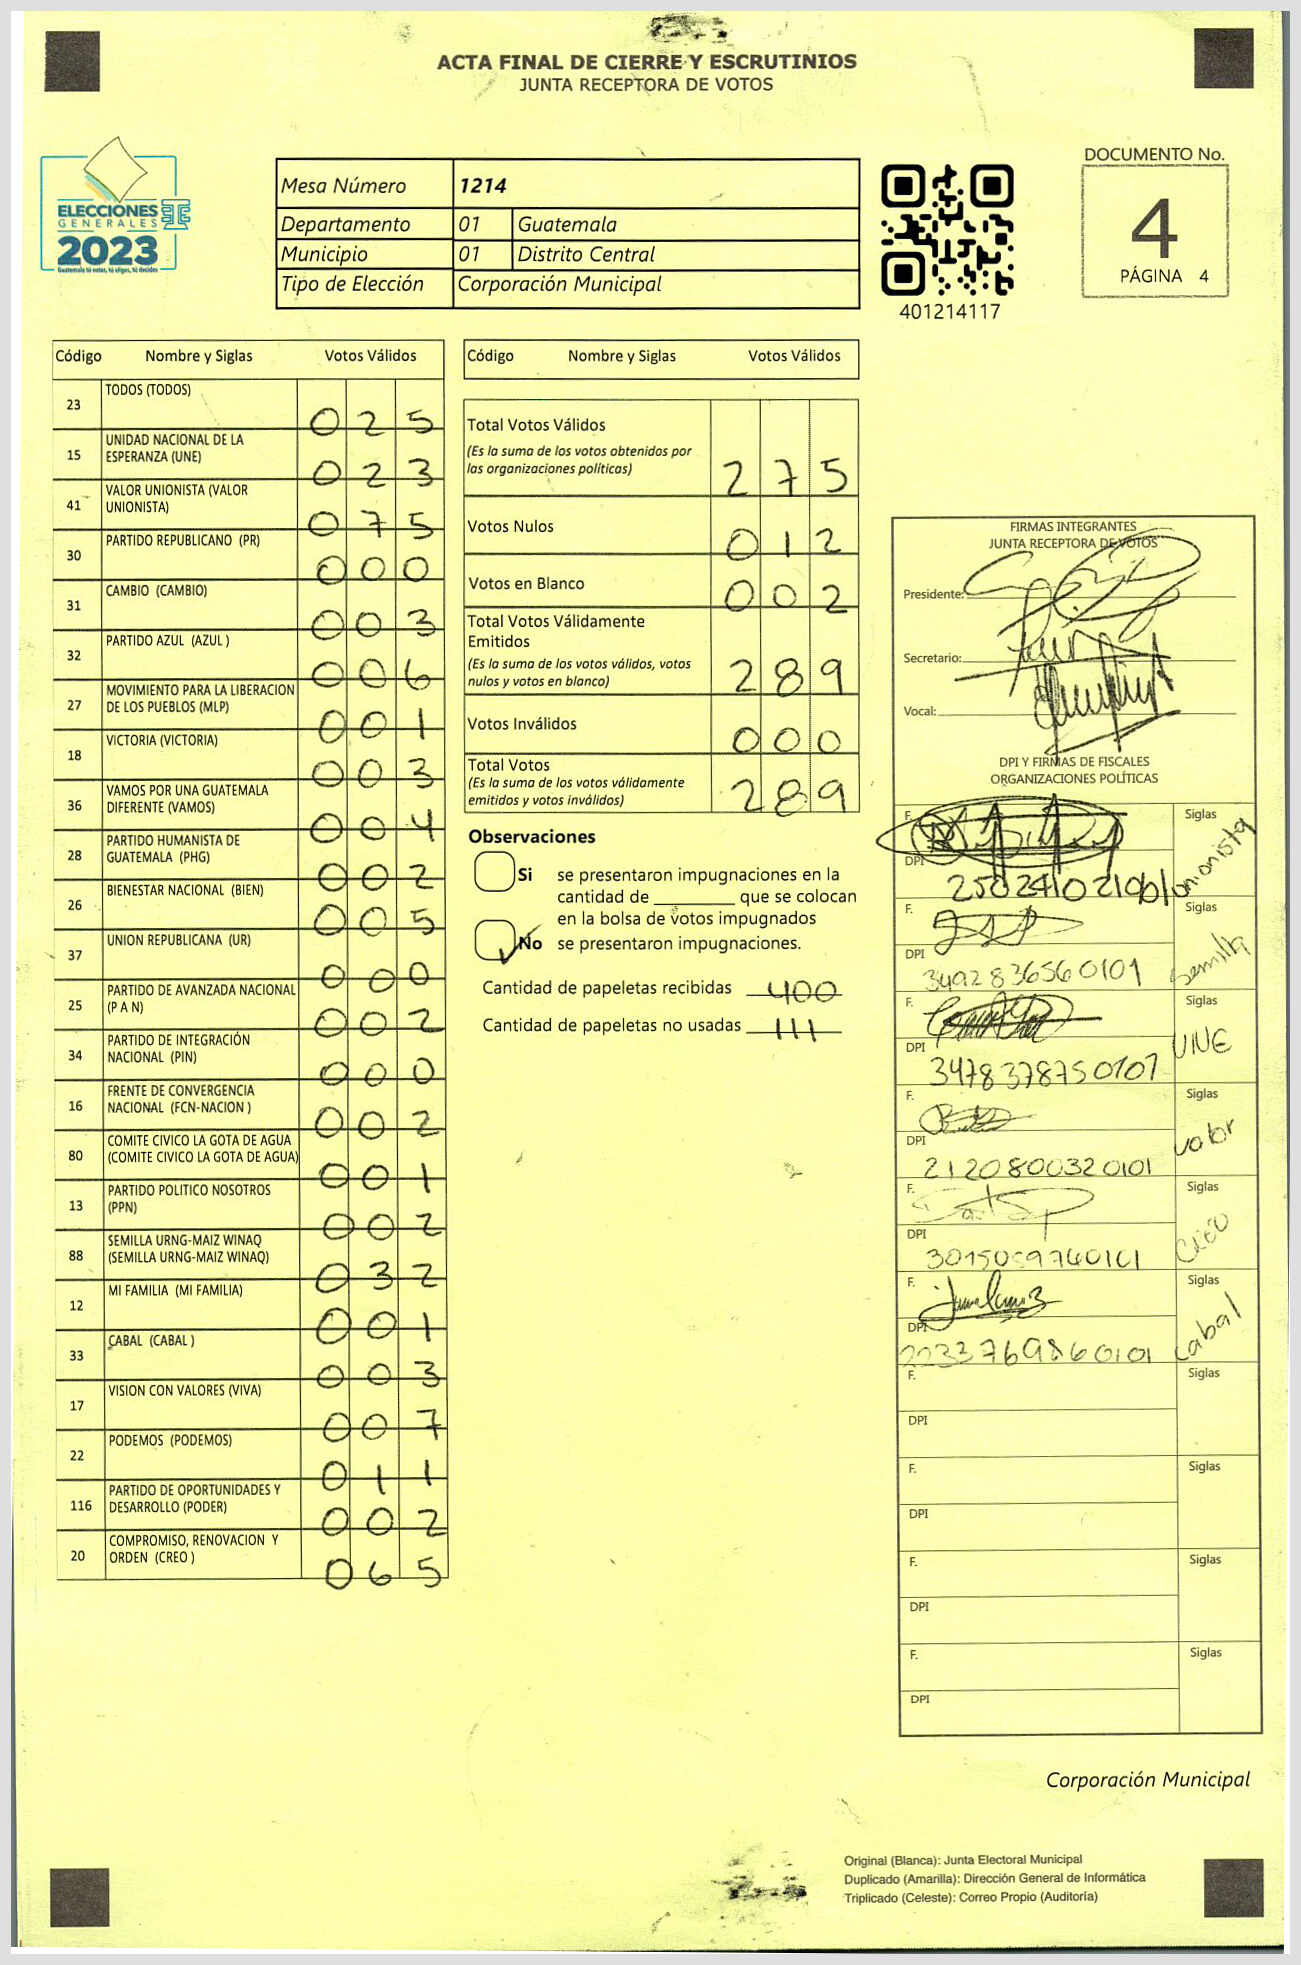 ACTA FINAL DE CIERRE Y ESCRUTINIOS
JUNTA RECEPTORA DE VOTOS
ELECCIONES
GENERALES
2023
Guatemala tú votas, tú eliges, tú decides
Mesa Número 1214
Departamento 01 Guatemala
Municipio 01 Distrito Central
Tipo de Elección Corporación Municipal
401214117
DOCUMENTO No.
4
PÁGINA 4
Código Nombre y Siglas Votos Válidos
23 TODOS (TODOS) 025
15 UNIDAD NACIONAL DE LA
ESPERANZA (UNE) 023
41 VALOR UNIONISTA (VALOR
UNIONISTA) 075
30 PARTIDO REPUBLICANO (PR) 000
31 CAMBIO (CAMBIO) 003
32 PARTIDO AZUL (AZUL ) 006
27 MOVIMIENTO PARA LA LIBERACION
DE LOS PUEBLOS (MLP) 001
18 VICTORIA (VICTORIA) 003
36 VAMOS POR UNA GUATEMALA
DIFERENTE (VAMOS) 004
28 PARTIDO HUMANISTA DE
GUATEMALA (PHG) 002
26 BIENESTAR NACIONAL (BIEN) 005
37 UNION REPUBLICANA (UR) 000
25 PARTIDO DE AVANZADA NACIONAL
(P A N) 002
34 PARTIDO DE INTEGRACIÓN
NACIONAL (PIN) 000
16 FRENTE DE CONVERGENCIA
NACIONAL (FCN-NACION ) 002
80 COMITE CIVICO LA GOTA DE AGUA
(COMITE CIVICO LA GOTA DE AGUA) 001
13 PARTIDO POLITICO NOSOTROS
(PPN) 002
88 SEMILLA URNG-MAIZ WINAQ
(SEMILLA URNG-MAIZ WINAQ) 032
12 MI FAMILIA (MI FAMILIA) 001
33 CABAL (CABAL ) 003
17 VISION CON VALORES (VIVA) 007
22 PODEMOS (PODEMOS) 011
116 PARTIDO DE OPORTUNIDADES Y
DESARROLLO (PODER) 002
20 COMPROMISO, RENOVACION Y
ORDEN (CREO ) 065
Código Nombre y Siglas Votos Válidos
Total Votos Válidos
(Es la suma de los votos obtenidos por
las organizaciones políticas) 275
Votos Nulos 012
Votos en Blanco 002
Total Votos Válidamente
Emitidos
(Es la suma de los votos válidos, votos
nulos y votos en blanco) 289
Votos Inválidos 000
Total Votos
(Es la suma de los votos válidamente
emitidos y votos inválidos) 289
Observaciones
Si se presentaron impugnaciones en la
cantidad de ________ que se colocan
en la bolsa de votos impugnados
No se presentaron impugnaciones.
Cantidad de papeletas recibidas 400
Cantidad de papeletas no usadas 111
FIRMAS INTEGRANTES
JUNTA RECEPTORA DE VOTOS
Presidente:
Secretario:
Vocal:
DPI Y FIRMAS DE FISCALES
ORGANIZACIONES POLÍTICAS
F. Siglas
DPI Unionista
F. Siglas
DPI 3492836560101 Semilla
F. Siglas
DPI 3478378750101 VIVE
F. Siglas
DPI 2120800320101 valor
F. Siglas
DPI CREO
F. Siglas
DPI 2233769860101 Cabal
F. Siglas
DPI
F. Siglas
DPI
F. Siglas
DPI
F. Siglas
DPI
Corporación Municipal
Original (Blanca): Junta Electoral Municipal
Duplicado (Amarilla): Dirección General de Informática
Triplicado (Celeste): Correo Propio (Auditoría)